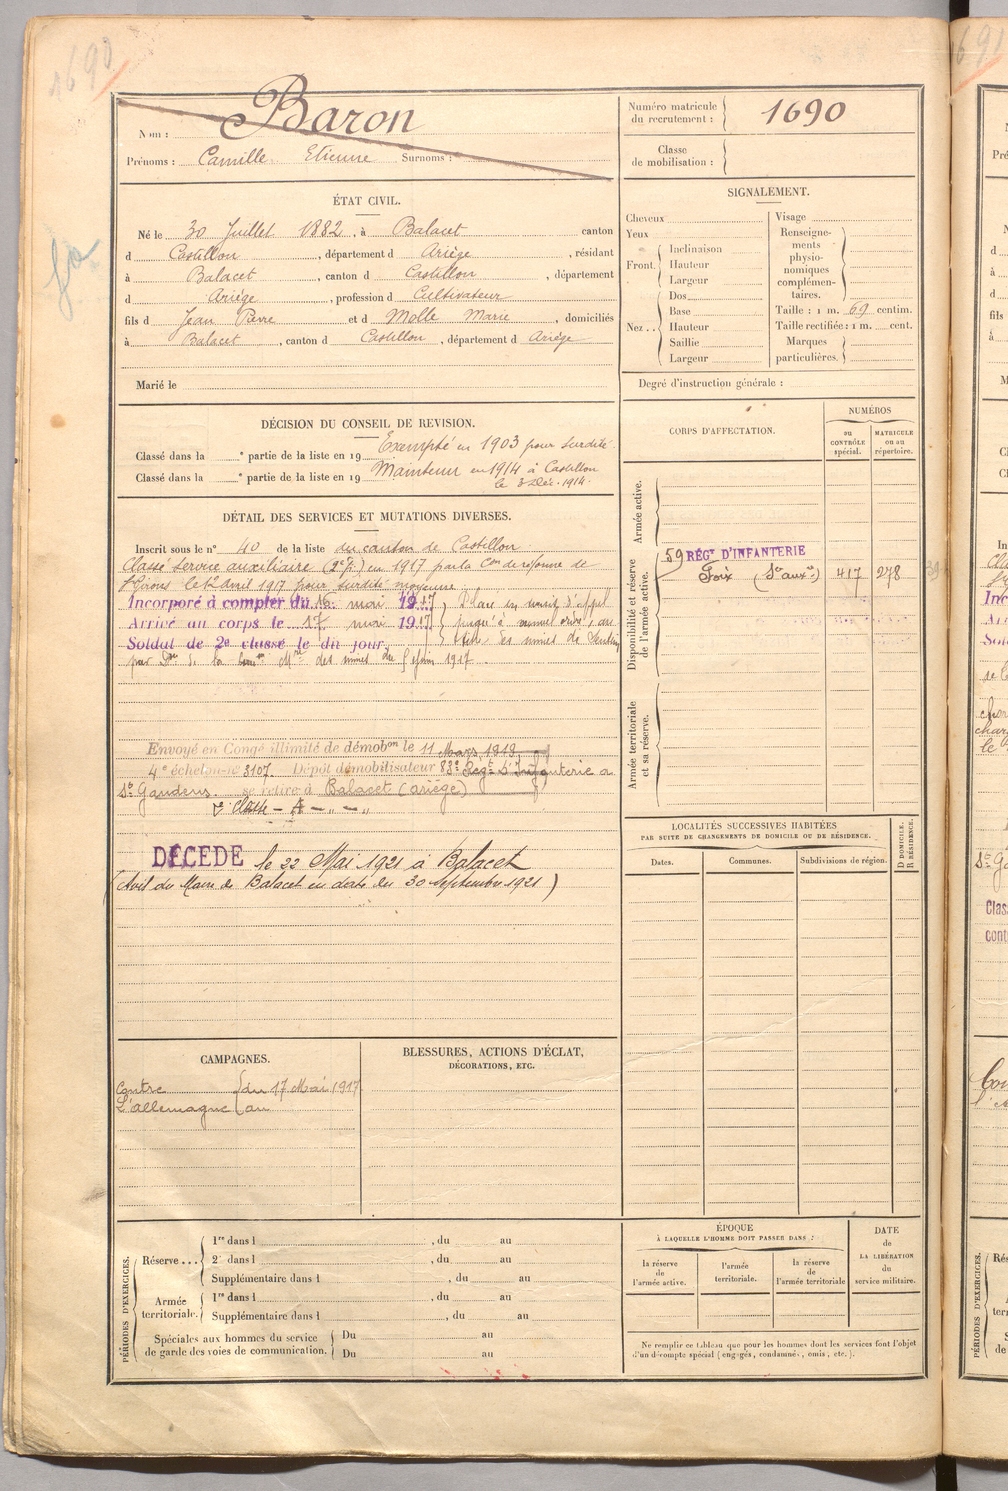 1690
Nom : Baron
Prénoms : Camille Etienne Surnoms :
Numéro matricule du recrutement : 1690
Classe de mobilisation :
ÉTAT CIVIL.
Né le 30 Juillet 1882, à Balacet canton
d Castillon, département d Ariège, résidant
à Balacet, canton d Castillon, département
d Ariège, profession d Cultivateur
fils d Jean Pierre et d Melle Marie, domiciliés
à Balacet, canton d Castillon, département d Ariège
Marié le
SIGNALEMENT.
Cheveux
Yeux
Front. Inclinaison
Hauteur
Largeur
Nez.. Dos
Base
Hauteur
Saillie
Largeur
Visage
Renseignements physionomiques complémentaires.
Taille : 1 m. 69 centim.
Taille rectifiée : 1 m. cent.
Marques particulières.
Degré d'instruction générale :
DÉCISION DU CONSEIL DE REVISION.
Classé dans la e partie de la liste en 19 Exempté en 1903 pour surdité
Classé dans la e partie de la liste en 19 Maintenu en 1914 à Castillon
le 3 Déc. 1914.
DÉTAIL DES SERVICES ET MUTATIONS DIVERSES.
Inscrit sous le n° 40 de la liste du canton de Castillon
Classé service auxiliaire (2e p.) en 1917 par la Con de réforme de
St Girons le 12 avril 1917 pour surdité moyenne
Incorporé à compter du 16 mai 1917
Arrivé au corps le 17 mai 1917
Soldat de 2e classe le dit jour.
Envoyé en Congé illimité de démobon le 11 Mars 1919.
4e échelon n° 3107. Dépôt démobilisateur 83e Regt d'Infanterie a
St Gaudens. se retire à Balacet (ariège)
DÉCÉDÉ le 22 Mai 1921 à Balacet
(Avis du Maire de Balacet en date du 30 septembre 1921)
CORPS D'AFFECTATION.
NUMÉROS
au CONTRÔLE spécial.
MATRICULE ou au répertoire.
Armée active.
Disponibilité et réserve de l'armée active.
59 RÉGt D'INFANTERIE
Foix (Sce auxre) 417 278
Armée territoriale et sa réserve.
LOCALITÉS SUCCESSIVES HABITÉES
PAR SUITE DE CHANGEMENTS DE DOMICILE OU DE RÉSIDENCE.
Dates.
Communes.
Subdivisions de région.
D DOMICILE.
R RÉSIDENCE.
CAMPAGNES.
Contre
L'allemagne
du 17 Mai 1917
au
BLESSURES, ACTIONS D'ÉCLAT,
DÉCORATIONS, ETC.
PÉRIODES D'EXERCICES.
Réserve... 1re dans l , du au
2e dans l , du au
Supplémentaire dans l , du au
Armée territoriale. 1re dans l , du au
Supplémentaire dans l , du au
Spéciales aux hommes du service de garde des voies de communication. Du au
Du au
ÉPOQUE
À LAQUELLE L'HOMME DOIT PASSER DANS :
la réserve de l'armée active.
l'armée territoriale.
la réserve de l'armée territoriale
DATE de LA LIBÉRATION du service militaire.
Ne remplir ce tableau que pour les hommes dont les services font l'objet
d'un décompte spécial (engagés, condamnés, omis, etc.).